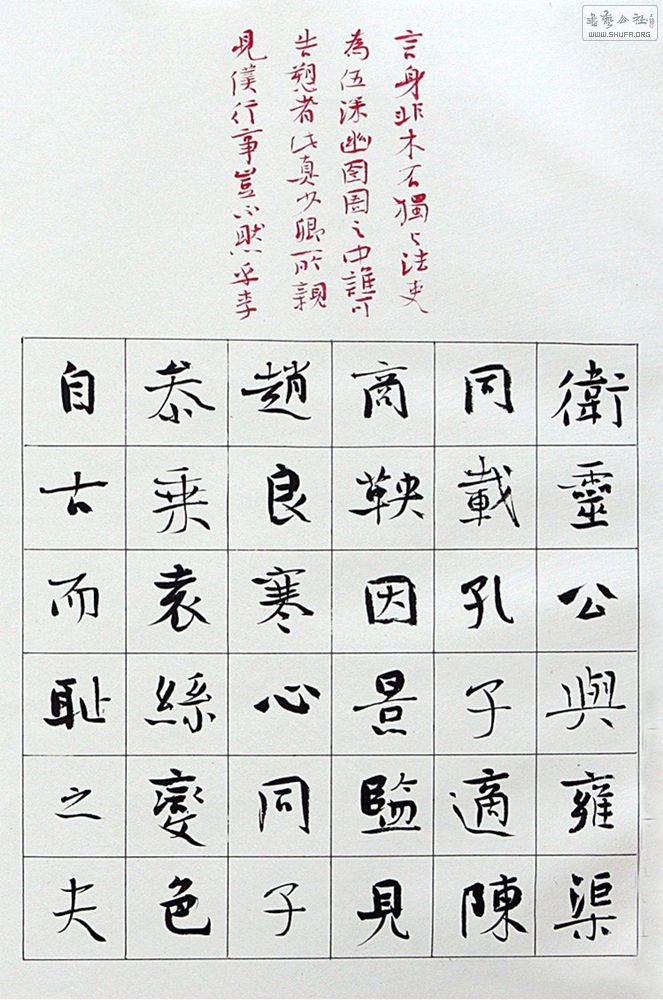 書藝公社
WWW.SHUFA.ORG
言身非木石獨与法吏
為伍深幽囹圄之中誰可
告愬者此真少卿所親
見僕行事豈不然乎李
衛靈公與雍渠
同載孔子適陳
商鞅因景監見
趙良寒心同子
叅乗袁絲變色
自古而耻之夫